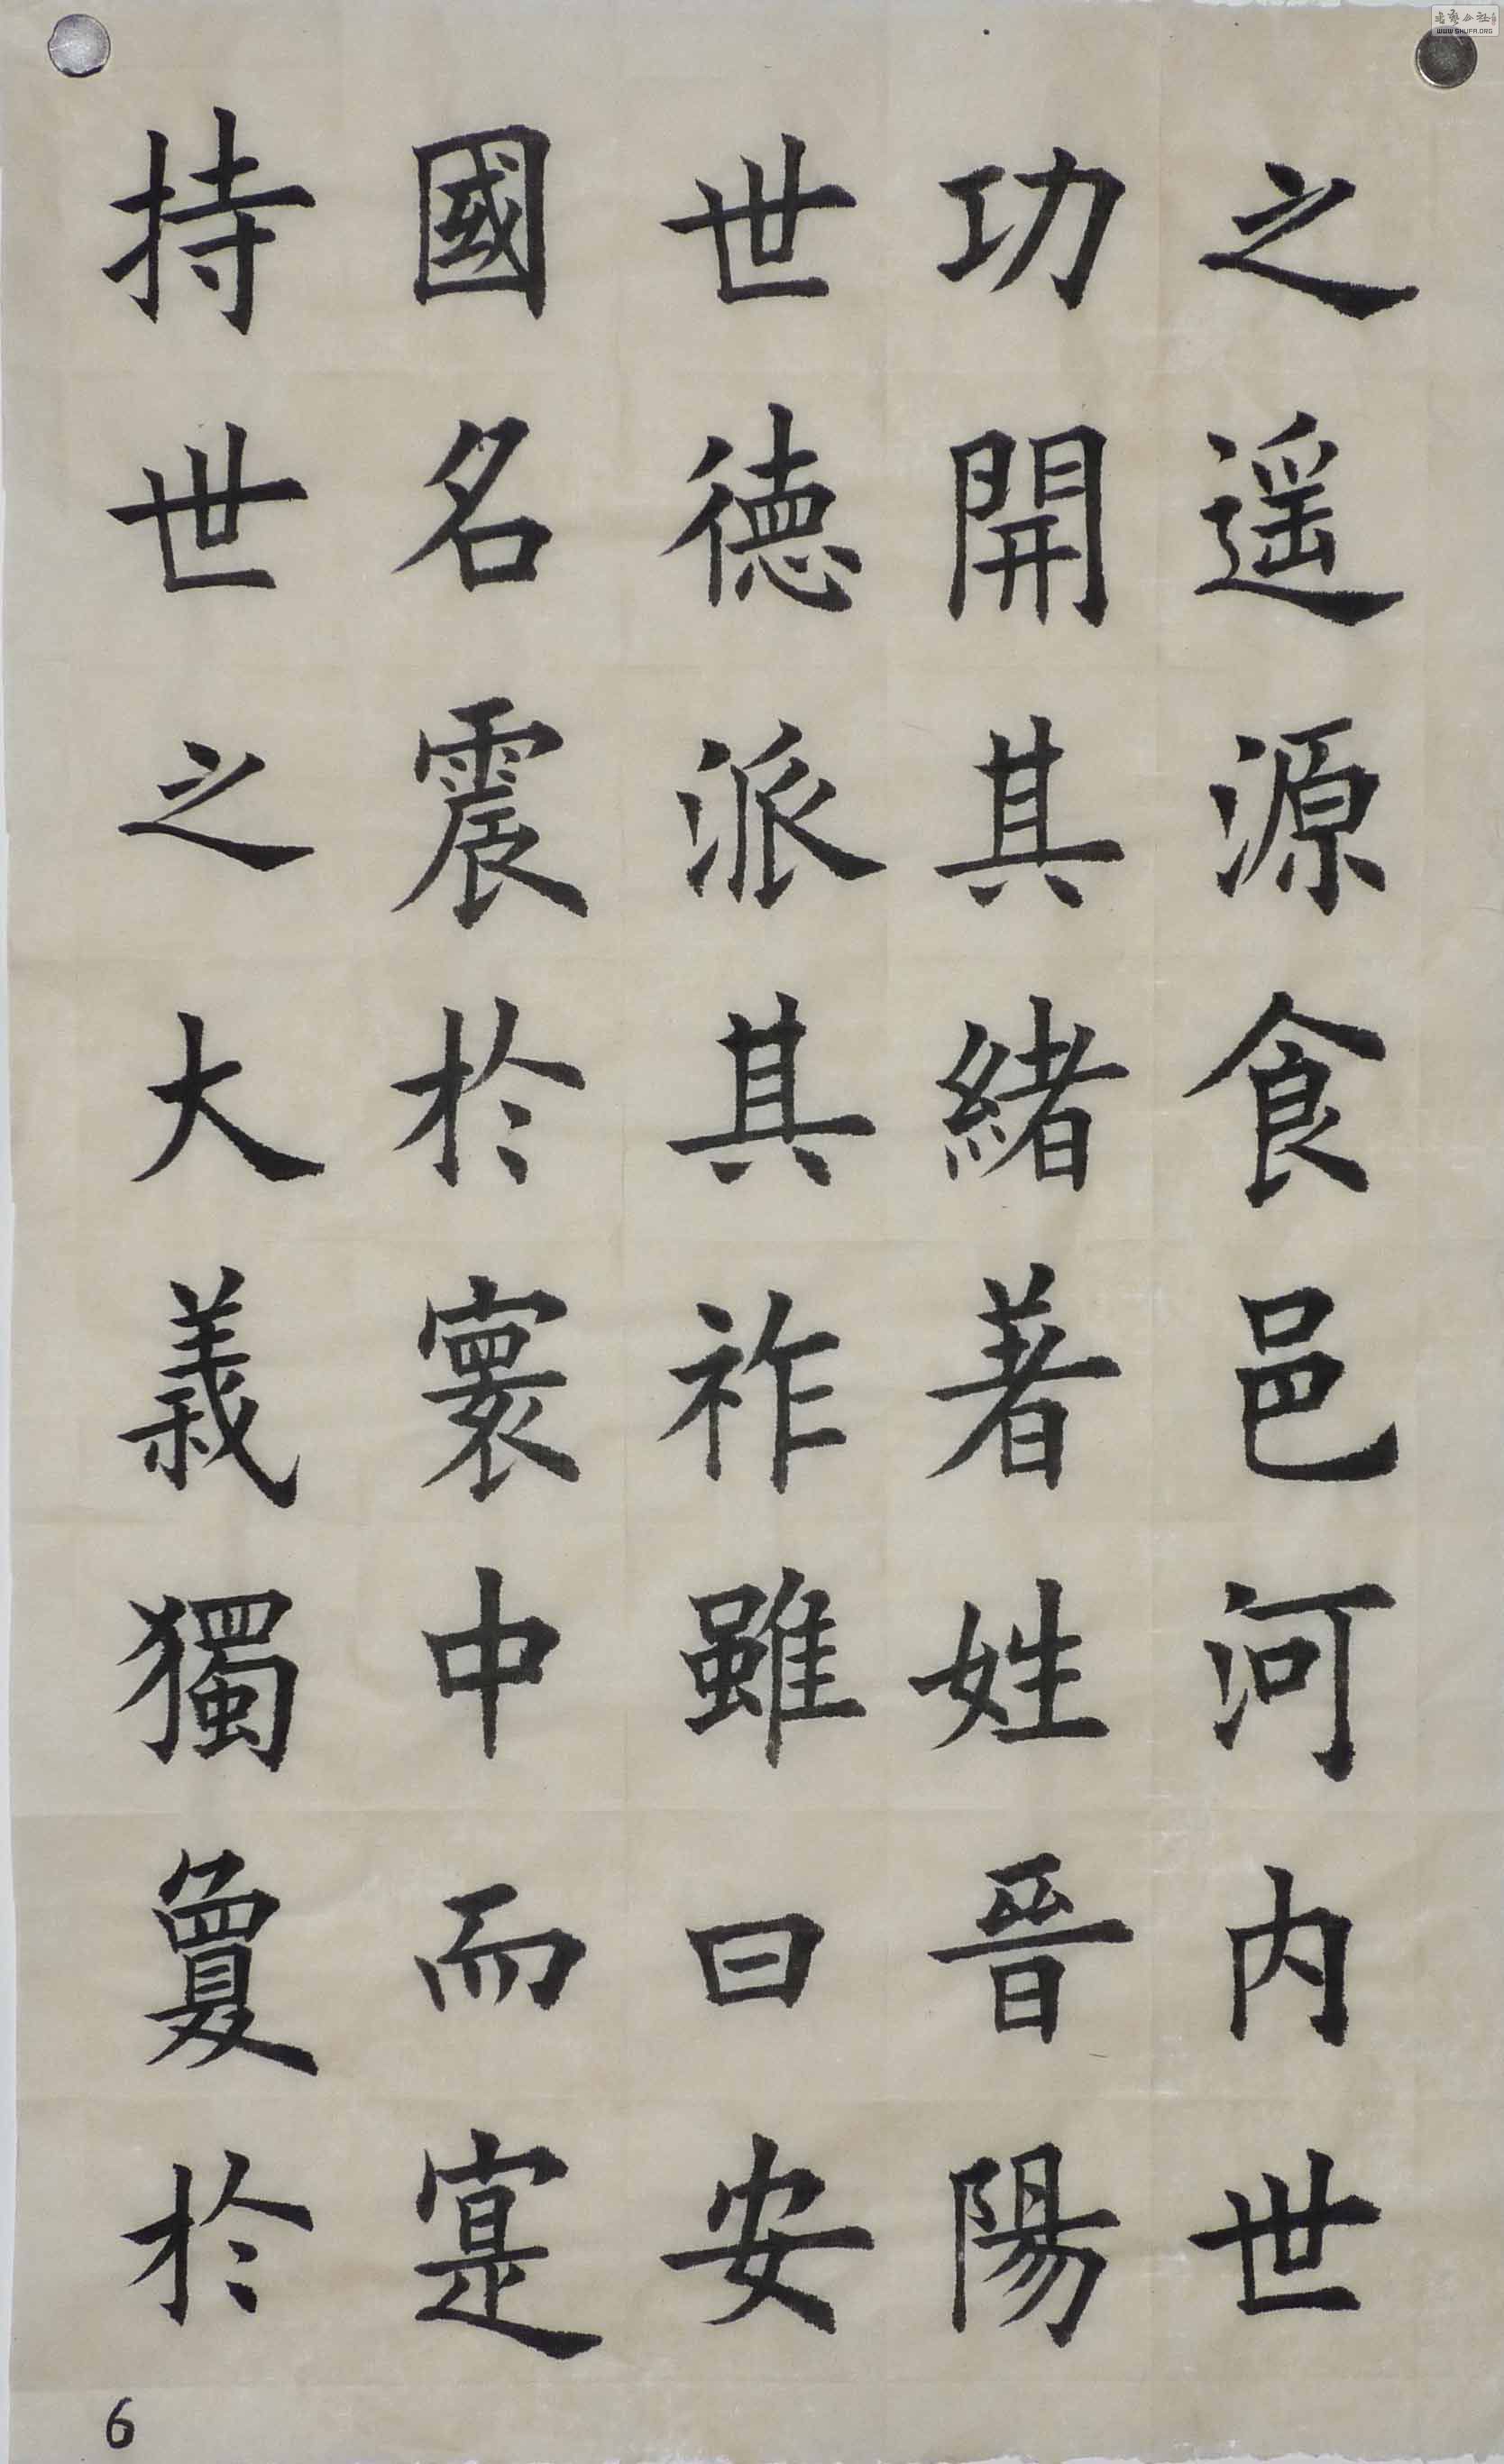 之遥源食邑河内世
功開其緒著姓晉陽
世德派其祚雖曰安
國名震於寰中而寔
持世之大義獨敻於
6
WWW.SHUFA.ORG